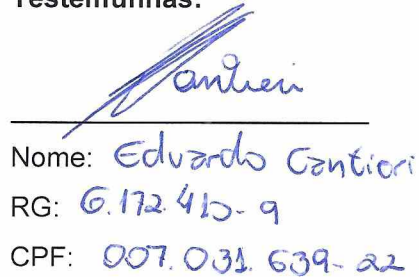 Testemunhas:
Cantieri
Nome: Eduardo Cantieri
RG: 6.172.410-9
CPF: 007.031.639-22